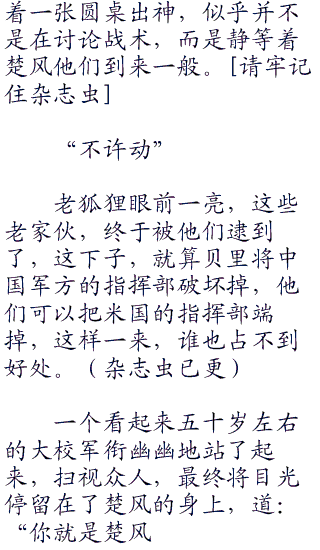 着一张圆桌出神，似乎并不
是在讨论战术，而是静等着
楚风他们到来一般。[请牢记
住杂志虫]
“不许动”
老狐狸眼前一亮，这些
老家伙，终于被他们逮到
了，这下子，就算贝里将中
国军方的指挥部破坏掉，他
们可以把米国的指挥部端
掉，这样一来，谁也占不到
好处。（杂志虫已更）
一个看起来五十岁左右
的大校军衔幽幽地站了起
来，扫视众人，最终将目光
停留在了楚风的身上，道：
“你就是楚风